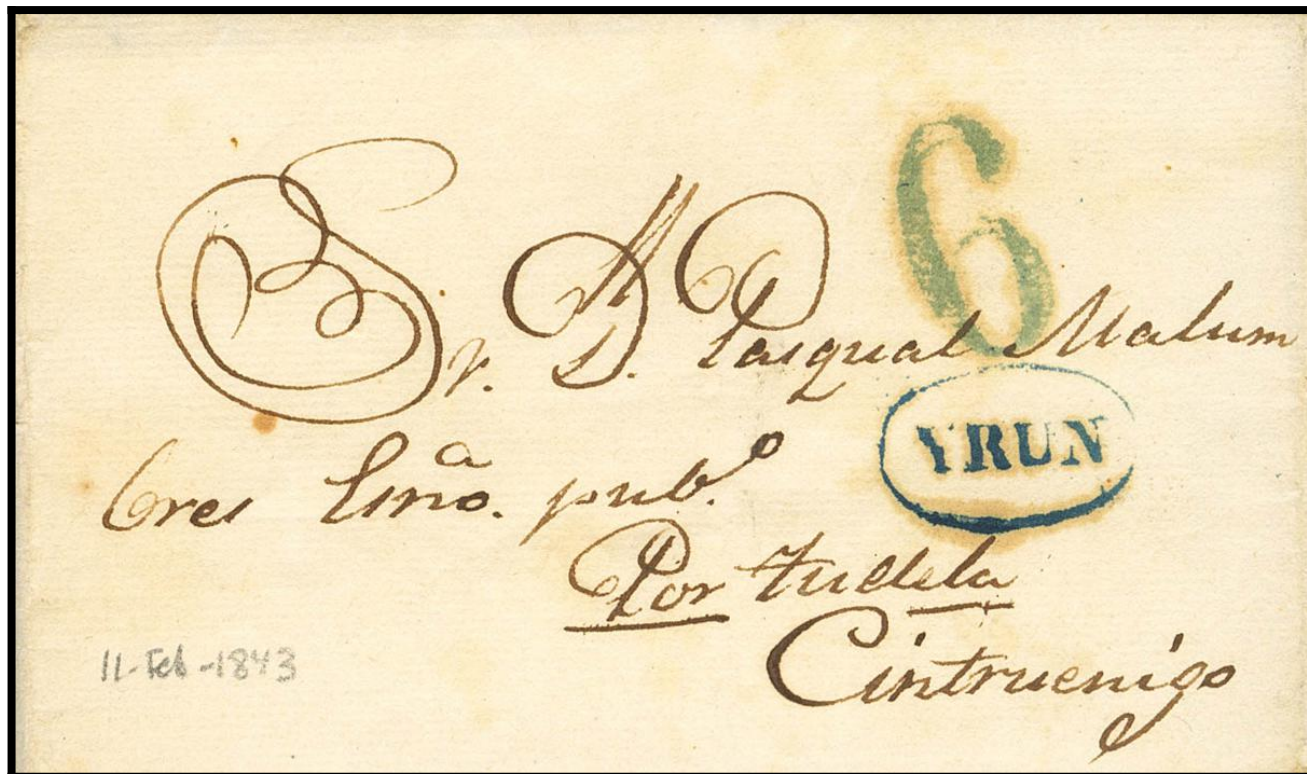 6
Sr. D. Pasqual Malum
YRUN
pub.º
Por Tudela
Cintruenigo
11-Feb-1843